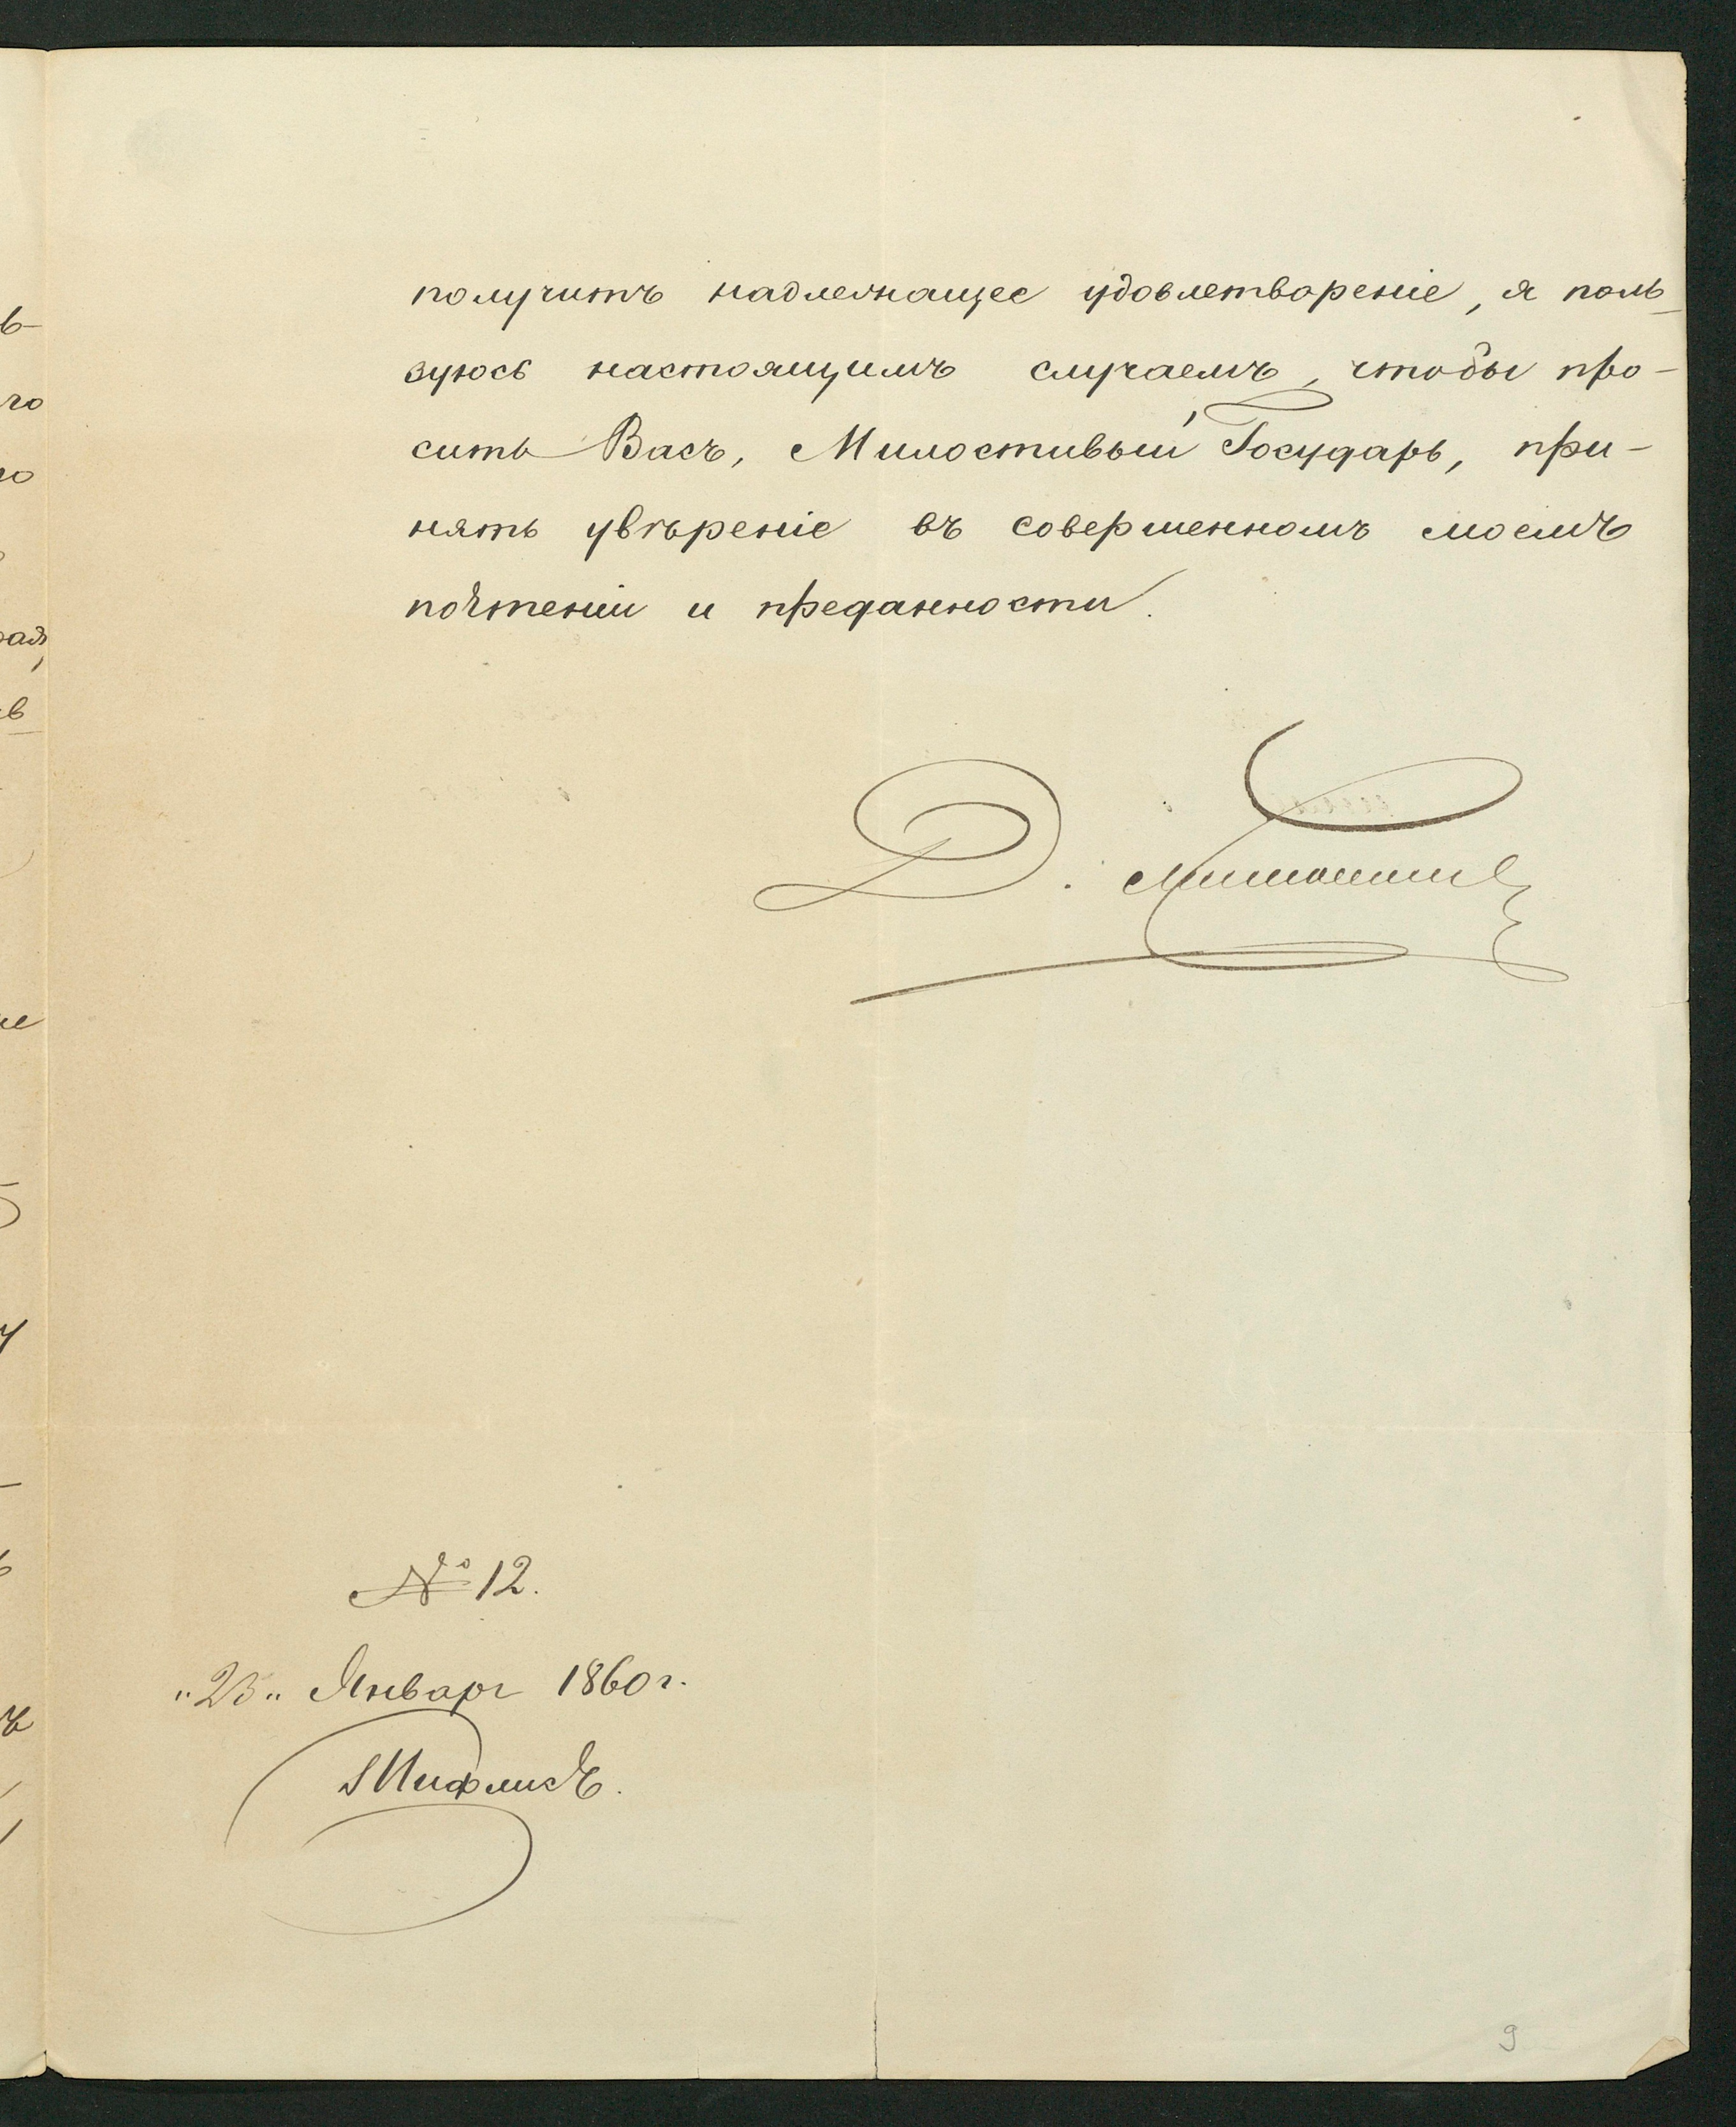 получитъ надлежащее удовлетвореніе, я поль-
зуюсь настоящимъ случаемъ, чтобы про-
сить Васъ, Милостивый Государь, при-
нять увѣреніе въ совершенномъ моемъ
почтеніи и преданности.
Д.
№ 12.
"23" Января 1860 г.
Тифлисъ.
9